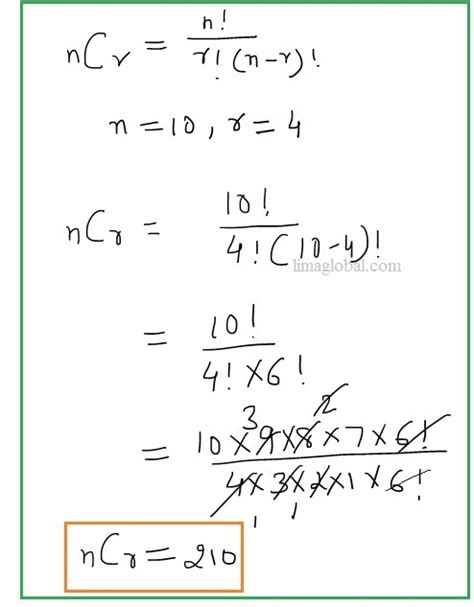 nCr = n! / r!(n-r)!
n = 10, r = 4
nCr = 10! / 4!(10-4)!
limaglobal.com
= 10! / 4! × 6!
3 2
= 10 × 9 × 8 × 7 × 6! / 4 × 3 × 2 × 1 × 6!
1 1
nCr = 210